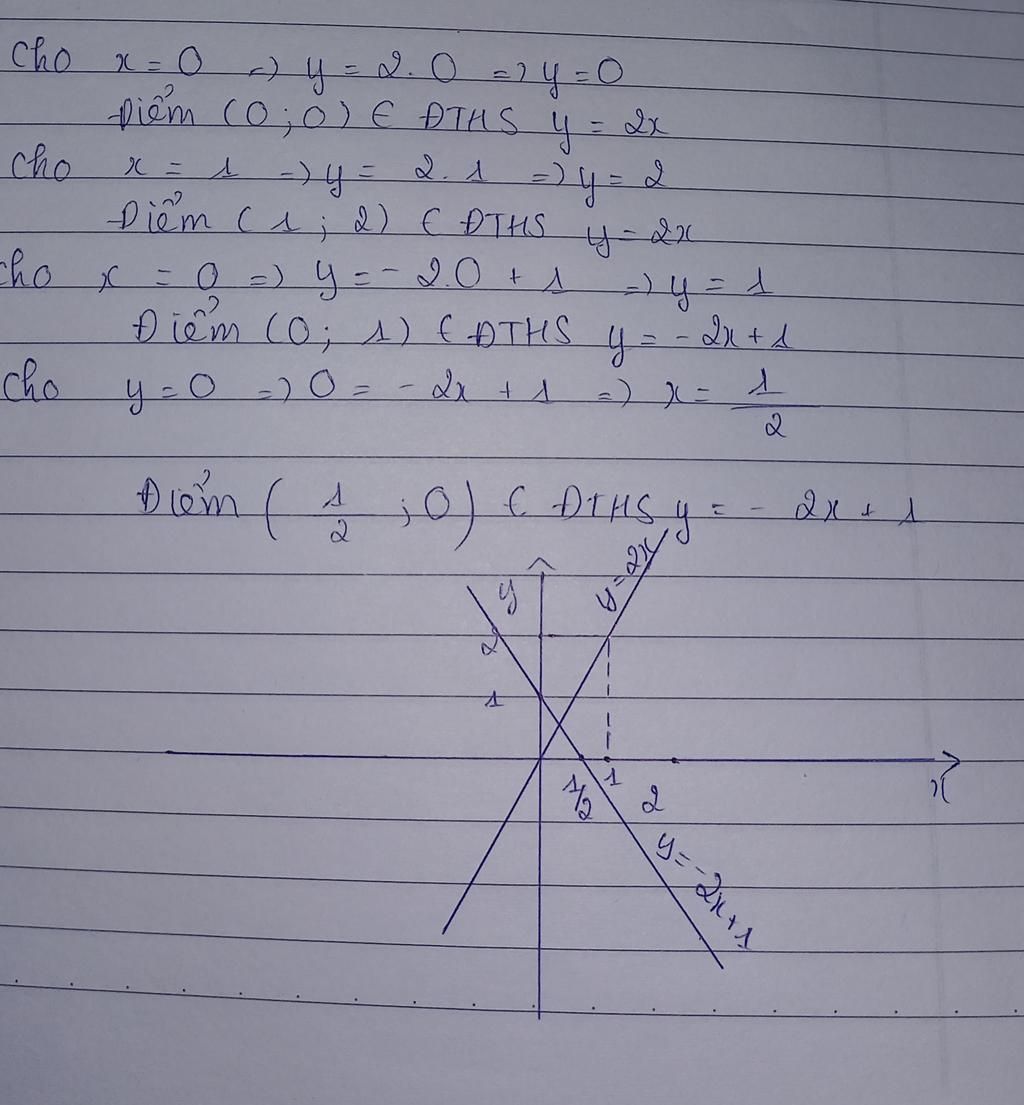 Cho x = 0 => y = 2.0 => y = 0
Điểm (0 ; 0) ∈ ĐTHS y = 2x
Cho x = 1 => y = 2.1 => y = 2
Điểm (1 ; 2) ∈ ĐTHS y = 2x
Cho x = 0 => y = -2.0 + 1 => y = 1
Điểm (0 ; 1) ∈ ĐTHS y = -2x + 1
Cho y = 0 => 0 = -2x + 1 => x = 1/2
Điểm (1/2 ; 0) ∈ ĐTHS y = -2x + 1
y
y = 2x
2
1
1/2
1
2
x
y = -2x + 1